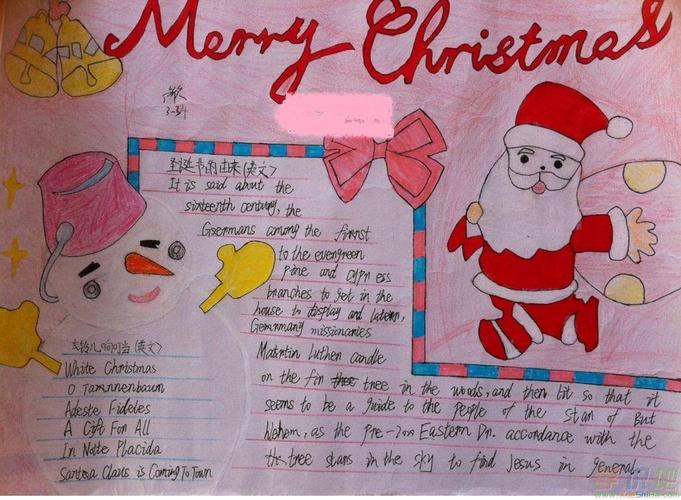 Merry Christmas
3-34
圣诞节的由来(英文)
It is said about the
sixteenth century, the
Gsermans among the firnst
to the evengreen
pine and cypn ess
branches to get in the
house to display and latern,
Gernmany missionaries
Matntin Luthen candle
on the fin tree in the woods, and then lit so that it
seems to be a guide to the people of the stan of But
Wehem, as the pre-2on Eastern Dn. accordance with the
tree stans in the sky to find Jesus in general.
铃儿响叮当(英文)
White Christmas
O Tamnnenbaun
Adeste Fideles
A Gift For All
In Notte Placida
Santosa Claus is Coming To Town